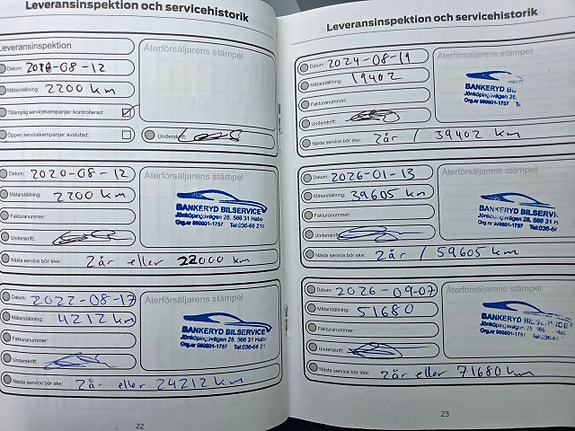 Leveransinspektion och servicehistorik
Leveransinspektion
Återförsäljarens stämpel
Datum: 2018-08-12
Mätarställning: 2200 km
Tillämplig servicekampanjer kontrollerad:
Öppen servicekampanjer avslutad:
Underskrift:
Datum: 2020-08-12
Återförsäljarens stämpel
Mätarställning: 2200 km
Fakturanummer:
Underskrift:
BANKERYD BILSERVICE
Jönköpingsvägen 28, 566 31 Habo
Org.nr 969801-1757 Tel:036-66 210
Nästa service bör ske: 2år eller 22000 km
Datum: 2022-08-17
Återförsäljarens stämpel
Mätarställning: 4212 km
Fakturanummer:
Underskrift:
BANKERYD BILSERVICE
Jönköpingsvägen 28, 566 31 Habo
Org.nr 969801-1757 Tel:036-66 210
Nästa service bör ske: 2år eller 24212 km
22
Leveransinspektion och servicehistorik
Datum: 2024-08-19
Återförsäljarens stämpel
Mätarställning: 19402
Fakturanummer:
Underskrift:
BANKERYD
Jönköpingsvägen 28,
Org.nr 969801-1757
Nästa service bör ske: 2år / 39402 km
Datum: 2026-01-13
Återförsäljarens stämpel
Mätarställning: 39605 km
Fakturanummer:
Underskrift:
BANKERYD BILSERVI
Jönköpingsvägen 28, 566 31
Org.nr 969801-1757
Nästa service bör ske: 2år / 59605 km
Datum: 2026-09-07
Återförsäljarens stämpel
Mätarställning: 51680
Fakturanummer:
Underskrift:
BANKERYD BILSERVICE
Jönköpingsvägen 28
Org.nr 969801-1757
Nästa service bör ske: 2år eller 71680 km
23